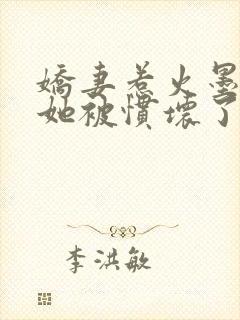 嬌妻惹火墨
她被慣壞了
李洪敏